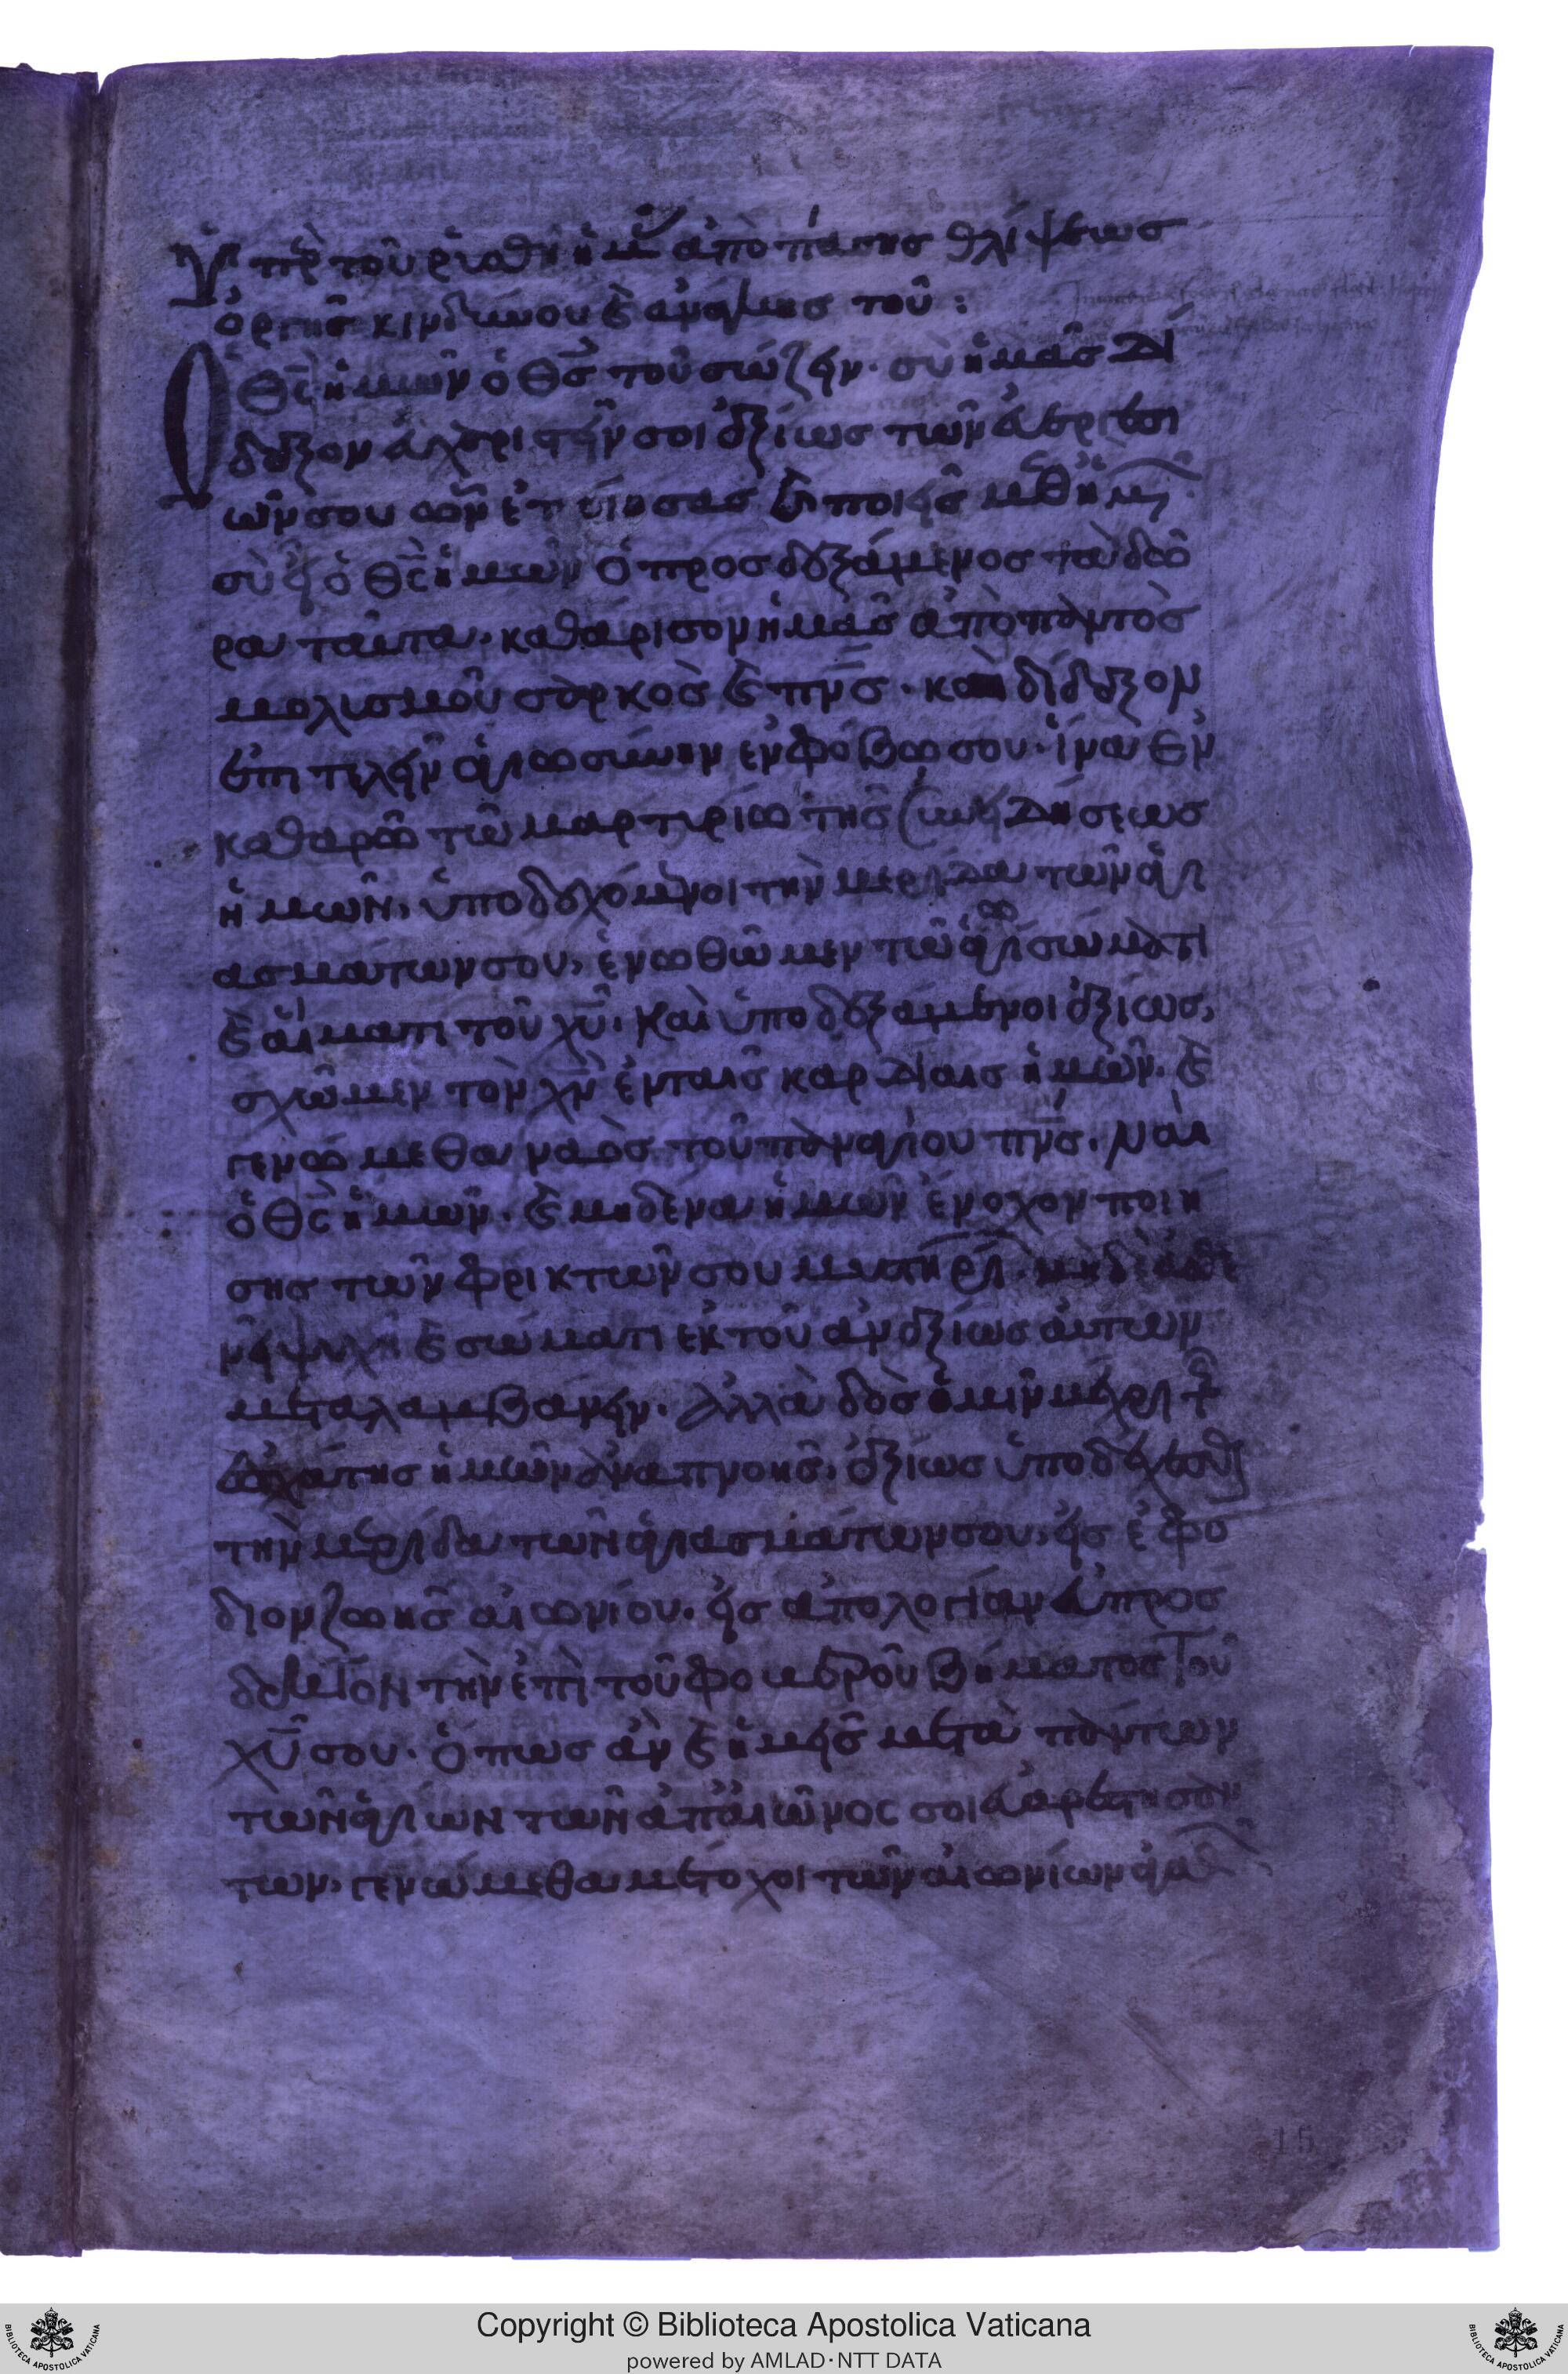 Ὑπὲρ τοῦ ῥυσθῆ ἡμᾶ ἀπὸ πάσης θλίψεως
ὀργῆς κινδύνου καὶ ἀνάγκης τοῦ:
Ὁ Θς ἡμῶν ὁ Θς τοῦ σώζειν· σὺ ἡμᾶς δί
δαξον εὐχαριστεῖν σοι ἀξίως τῶν εὐεργεσι
ῶν σου ὧν ἐποίησας καὶ ποιεῖς μεθ ἡμ
σὺ εἶ ὁ Θς ἡμῶν ὁ προσδεξάμενος τὰ δῶ
ρα ταῦτα· καθάρισον ἡμᾶς ἀπὸ παντὸς
μολισμοῦ σαρκὸς καὶ πνς· καὶ δίδαξον
ἐπιτελεῖν ἁγιωσύνην ἐν φόβω σου· ἵνα ἐν
καθαρῶ τῶ μαρτυρίω τῆς συνειδήσεως
ἡμῶν, ὑποδεχόμενοι τὴν μερίδα τῶν ἁγι
ασμάτων σου, ἑνωθῶμεν τῶ ἁγίω σώματι
καὶ αἵματι τοῦ χυ· καὶ ὑποδεξάμενοι ἀξίως,
σχῶμεν τὸν χν ἐν ταῖς καρδίαις ἡμῶν· καὶ
γενώμεθα ναὸς τοῦ παναγίου πνς· Ναὶ
ὁ Θς ἡμῶν· καὶ μηδένα ἡμῶν ἔνοχον ποιή
σης τῶν φρικτῶν σου μυστηρί· μὴ δὲ ἀσθε
νῆ ψυχῆ καὶ σώματι ἐκ τοῦ ἀναξίως αὐτῶν
μεταλαμβάνειν· Ἀλλὰ δὸς ἡμῖν μέχρι τ
ἐσχάτης ἡμῶν ἀναπνοῆς, ἀξίως ὑποδέχεσθ
τὴν μερίδα τῶν ἁγιασμάτων σου, εἰς ἐφό
διον ζωῆς αἰωνίου· εἰς ἀπολογίαν εὐπρόσ
δεκτον τὴν ἐπὶ τοῦ φοβεροῦ βήματος τοῦ
χυ σου· ὅπως ἂν καὶ ἡμεῖς μετὰ πάντων
τῶν ἁγίων τῶν ἀπ αἰῶνος σοι εὐαρεστησάν
των, γενώμεθα μέτοχοι τῶν αἰωνίων ἀγα
15